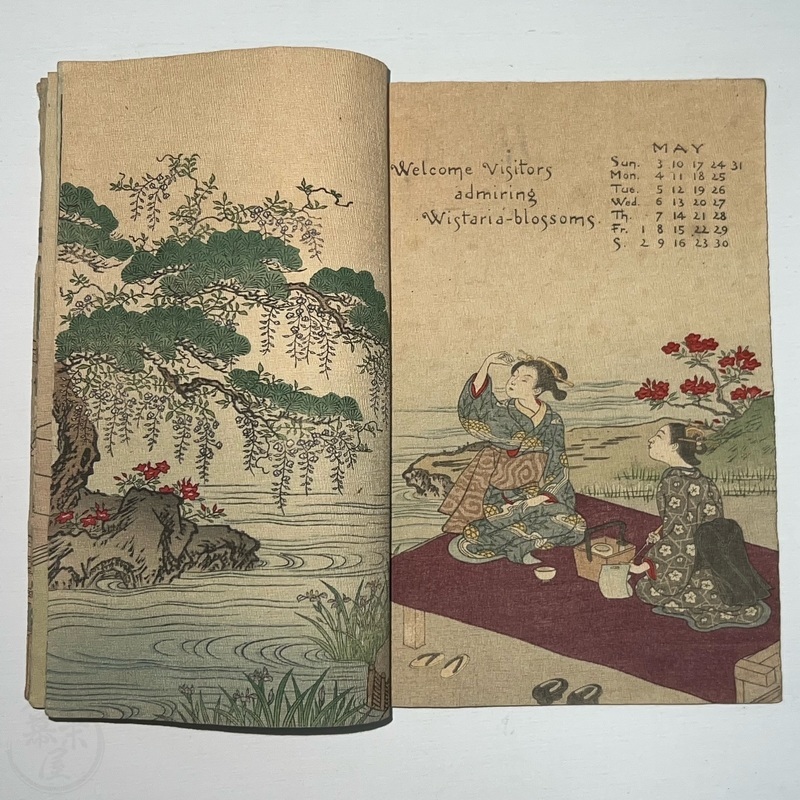 Welcome Visitors
admiring
Wistaria-blossoms.
MAY
Sun. 3 10 17 24 31
Mon. 4 11 18 25
Tue. 5 12 19 26
Wed. 6 13 20 27
Th. 7 14 21 28
Fr. 1 8 15 22 29
S. 2 9 16 23 30